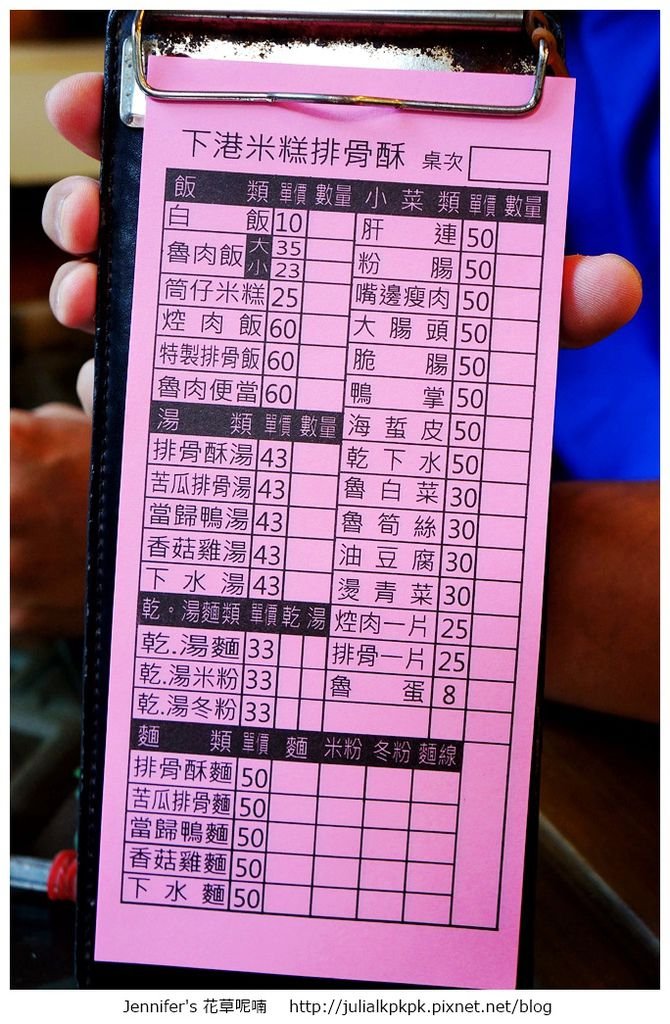 下港米糕排骨酥 桌次
飯類 單價 數量
白飯 10
魯肉飯 大 35
小 23
筒仔米糕 25
焢肉飯 60
特製排骨飯 60
魯肉便當 60
湯類 單價 數量
排骨酥湯 43
苦瓜排骨湯 43
當歸鴨湯 43
香菇雞湯 43
下水湯 43
乾。湯麵類 單價 乾 湯
乾.湯麵 33
乾.湯米粉 33
乾.湯冬粉 33
小菜類 單價 數量
肝連 50
粉腸 50
嘴邊瘦肉 50
大腸頭 50
脆腸 50
鴨掌 50
海蜇皮 50
乾下水 50
魯白菜 30
魯筍絲 30
油豆腐 30
燙青菜 30
焢肉一片 25
排骨一片 25
魯蛋 8
麵類 單價 麵 米粉 冬粉 麵線
排骨酥麵 50
苦瓜排骨麵 50
當歸鴨麵 50
香菇雞麵 50
下水麵 50
Jennifer's 花草呢喃 http://julialkpkpk.pixnet.net/blog